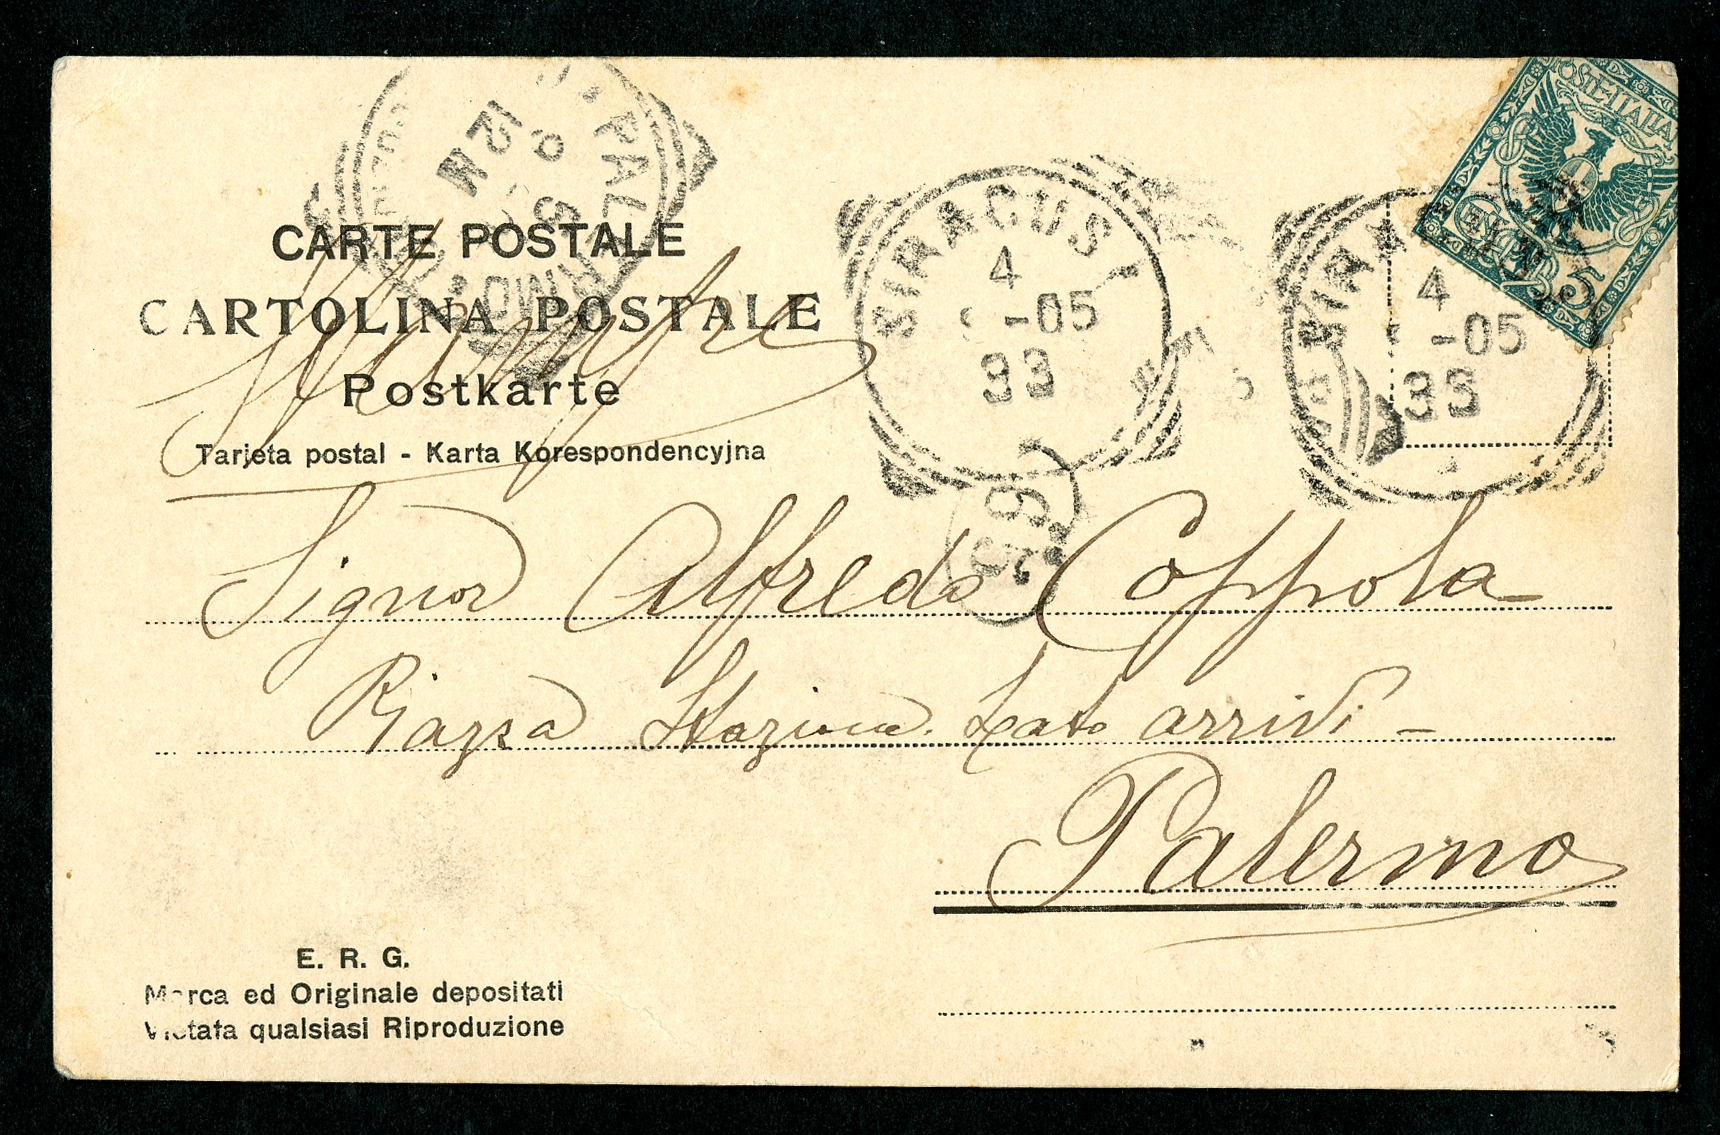 CARTE POSTALE
CARTOLINA POSTALE
Postkarte
Tarjeta postal - Karta Korespondencyjna
Stampe
SIRACUSA
4
-05
33
SIRA
4
-05
33
PALERMO
12 M
POSTE ITALIANE
5
Signor Alfredo Coppola
Piazza Stazione. Lato arrivi -
Palermo
E. R. G.
Marca ed Originale depositati
Vietata qualsiasi Riproduzione